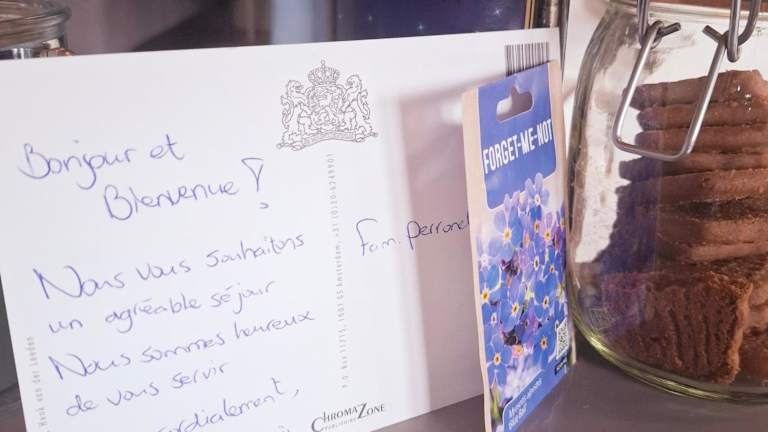 Bonjour et
Bienvenue !
Nous vous souhaitons
un agréable séjour
Nous sommes heureux
de vous servir
cordialement,
Fam. Perronet
Henk van der Leeden
P.O. Box 11715, 1001 GS Amsterdam, +31 (0)20-6249901
CHROMAZONE
PUBLISHING
FORGET-ME-NOT
Myosotis alpestris
Blue Ball